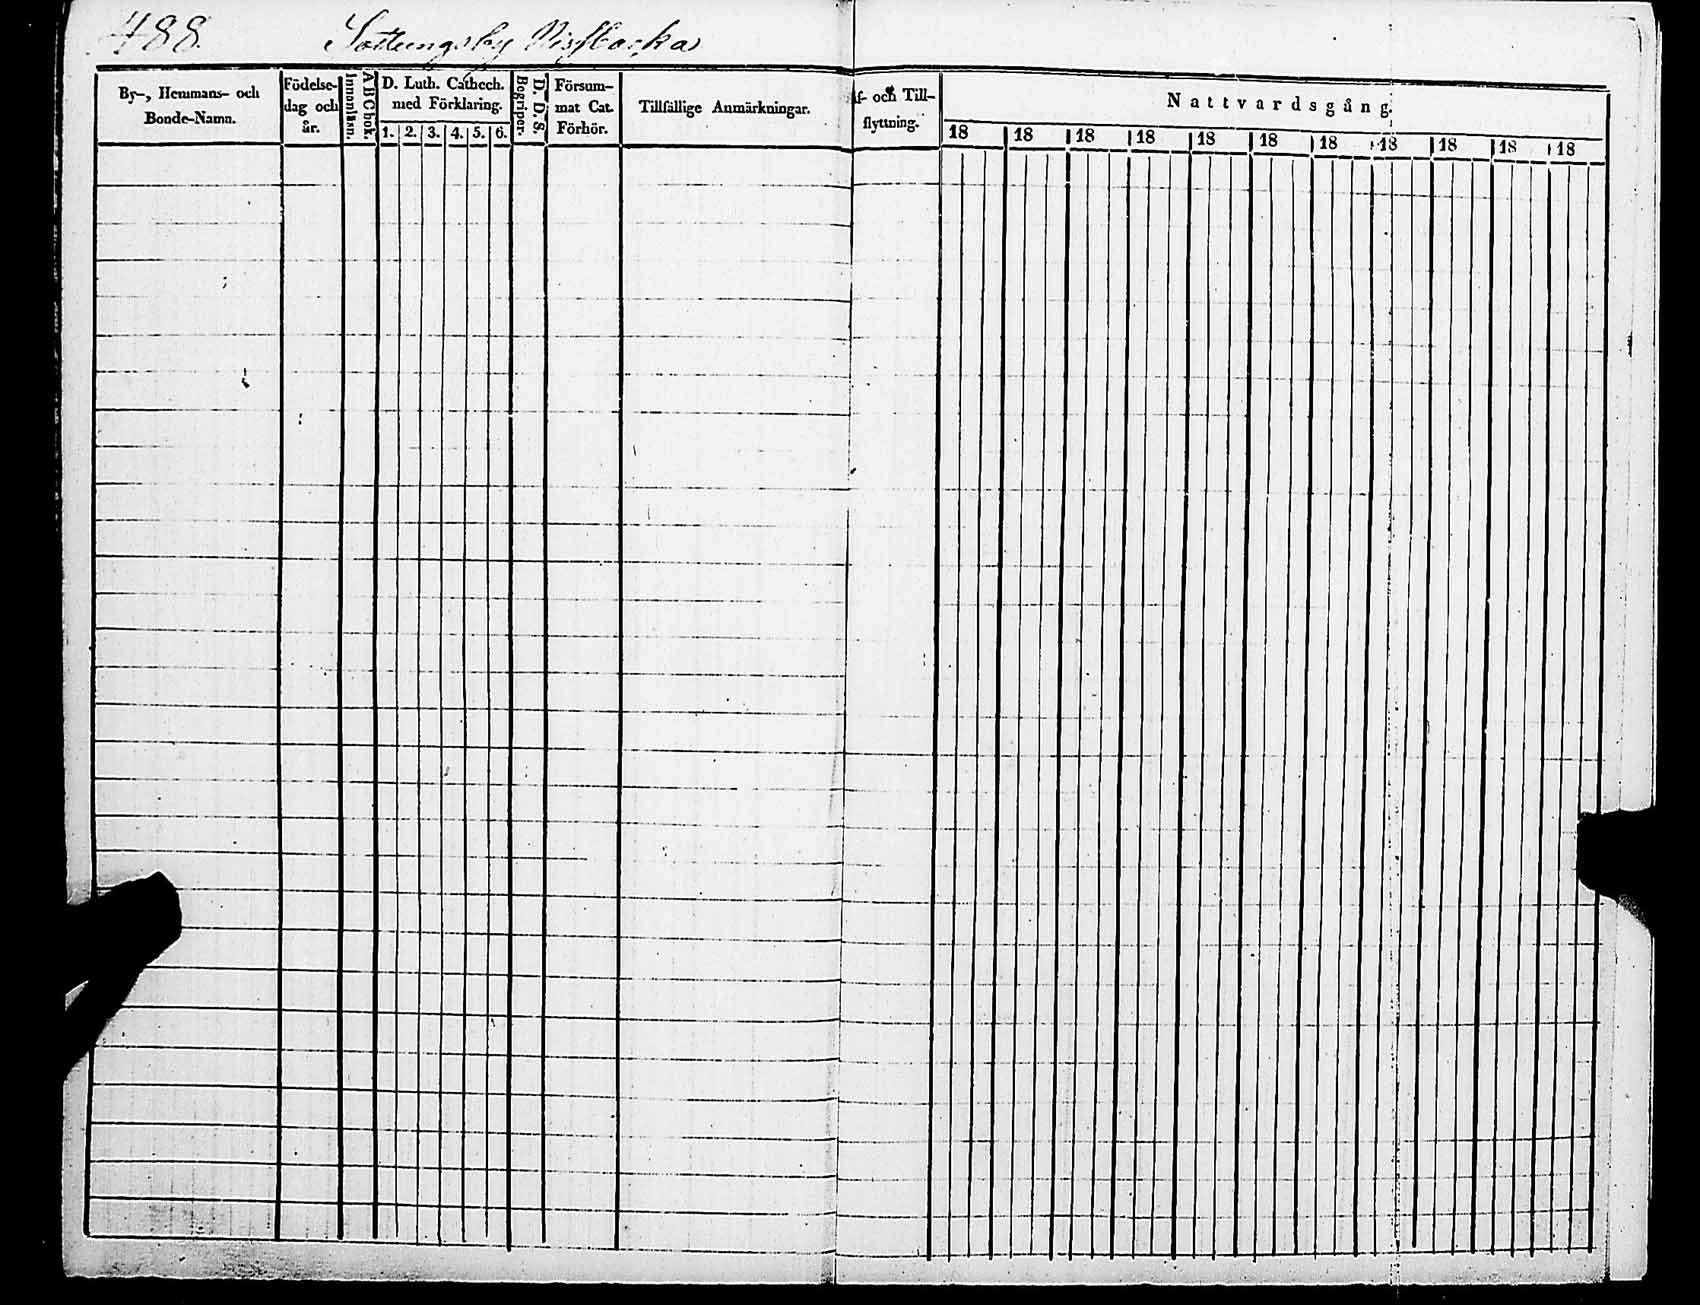 488. Sottungsby Nissbacka
By-, Hemmans- och
Bonde-Namn.
Födelse-
dag och
år.
Innanläsn.
A B C bok.
D. Luth. Cathech.
med Förklaring.
1. 2. 3. 4. 5. 6.
D. D. S.
Begriper.
Försum-
mat Cat.
Förhör.
Tillfällige Anmärkningar.
f- och Till-
flyttning.
Nattvardsgång.
18 18 18 18 18 18 18 18 18 18 18